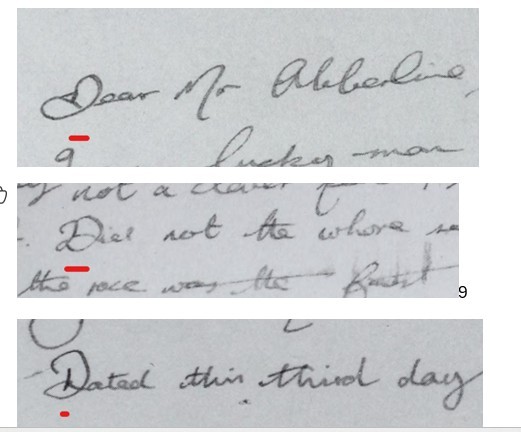 Dear Mr Abberline,
9 lucky man
not a clever
Did not the whore
the race was the
9
Dated this third day